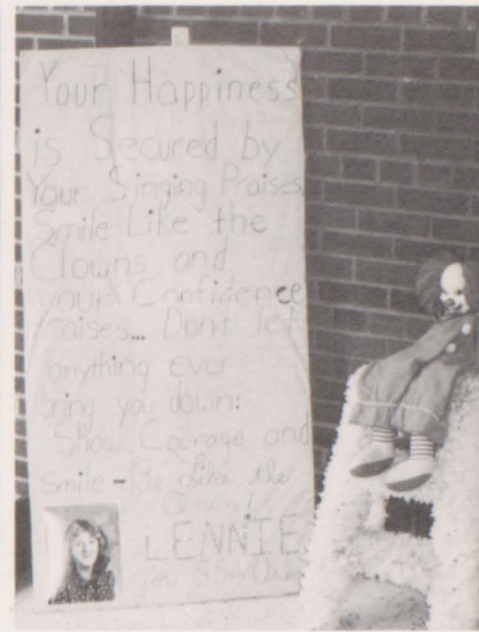 Your Happiness
is Secured by
Your Singing Praises
Smile Like the
Clowns and
your Confidence
raises... Don't let
anything ever
bring you down:
Show Courage and
smile - Be like the
Clown!
LENNIE